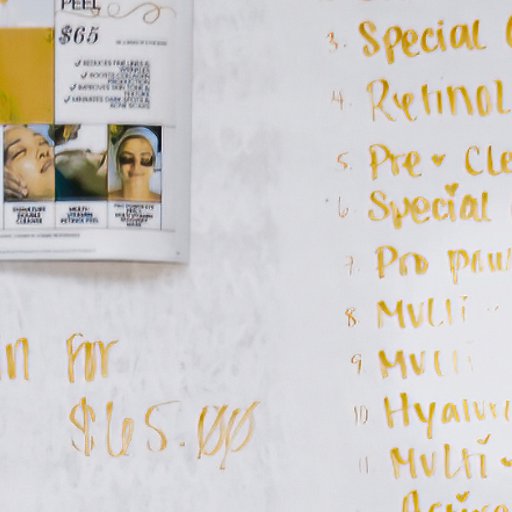 PEEL
$65
✓ REDUCES FINE LINES &
WRINKLES
✓ BOOSTS COLLAGEN
PRODUCTION
✓ IMPROVES SKIN TONE &
TEXTURE
✓ MINIMIZES DARK SPOTS &
ACNE SCARS
SIGNATURE
DOUBLE
CLEANSE
MULTI-
VITAMIN
RETINOL PEEL
MASK
In For
$65.00
3. Special
4. Retinol
5. Pre Cle
6. Special
7. Pro
8. Multi -
9. Multi
10 Hyalur
11 Multi -